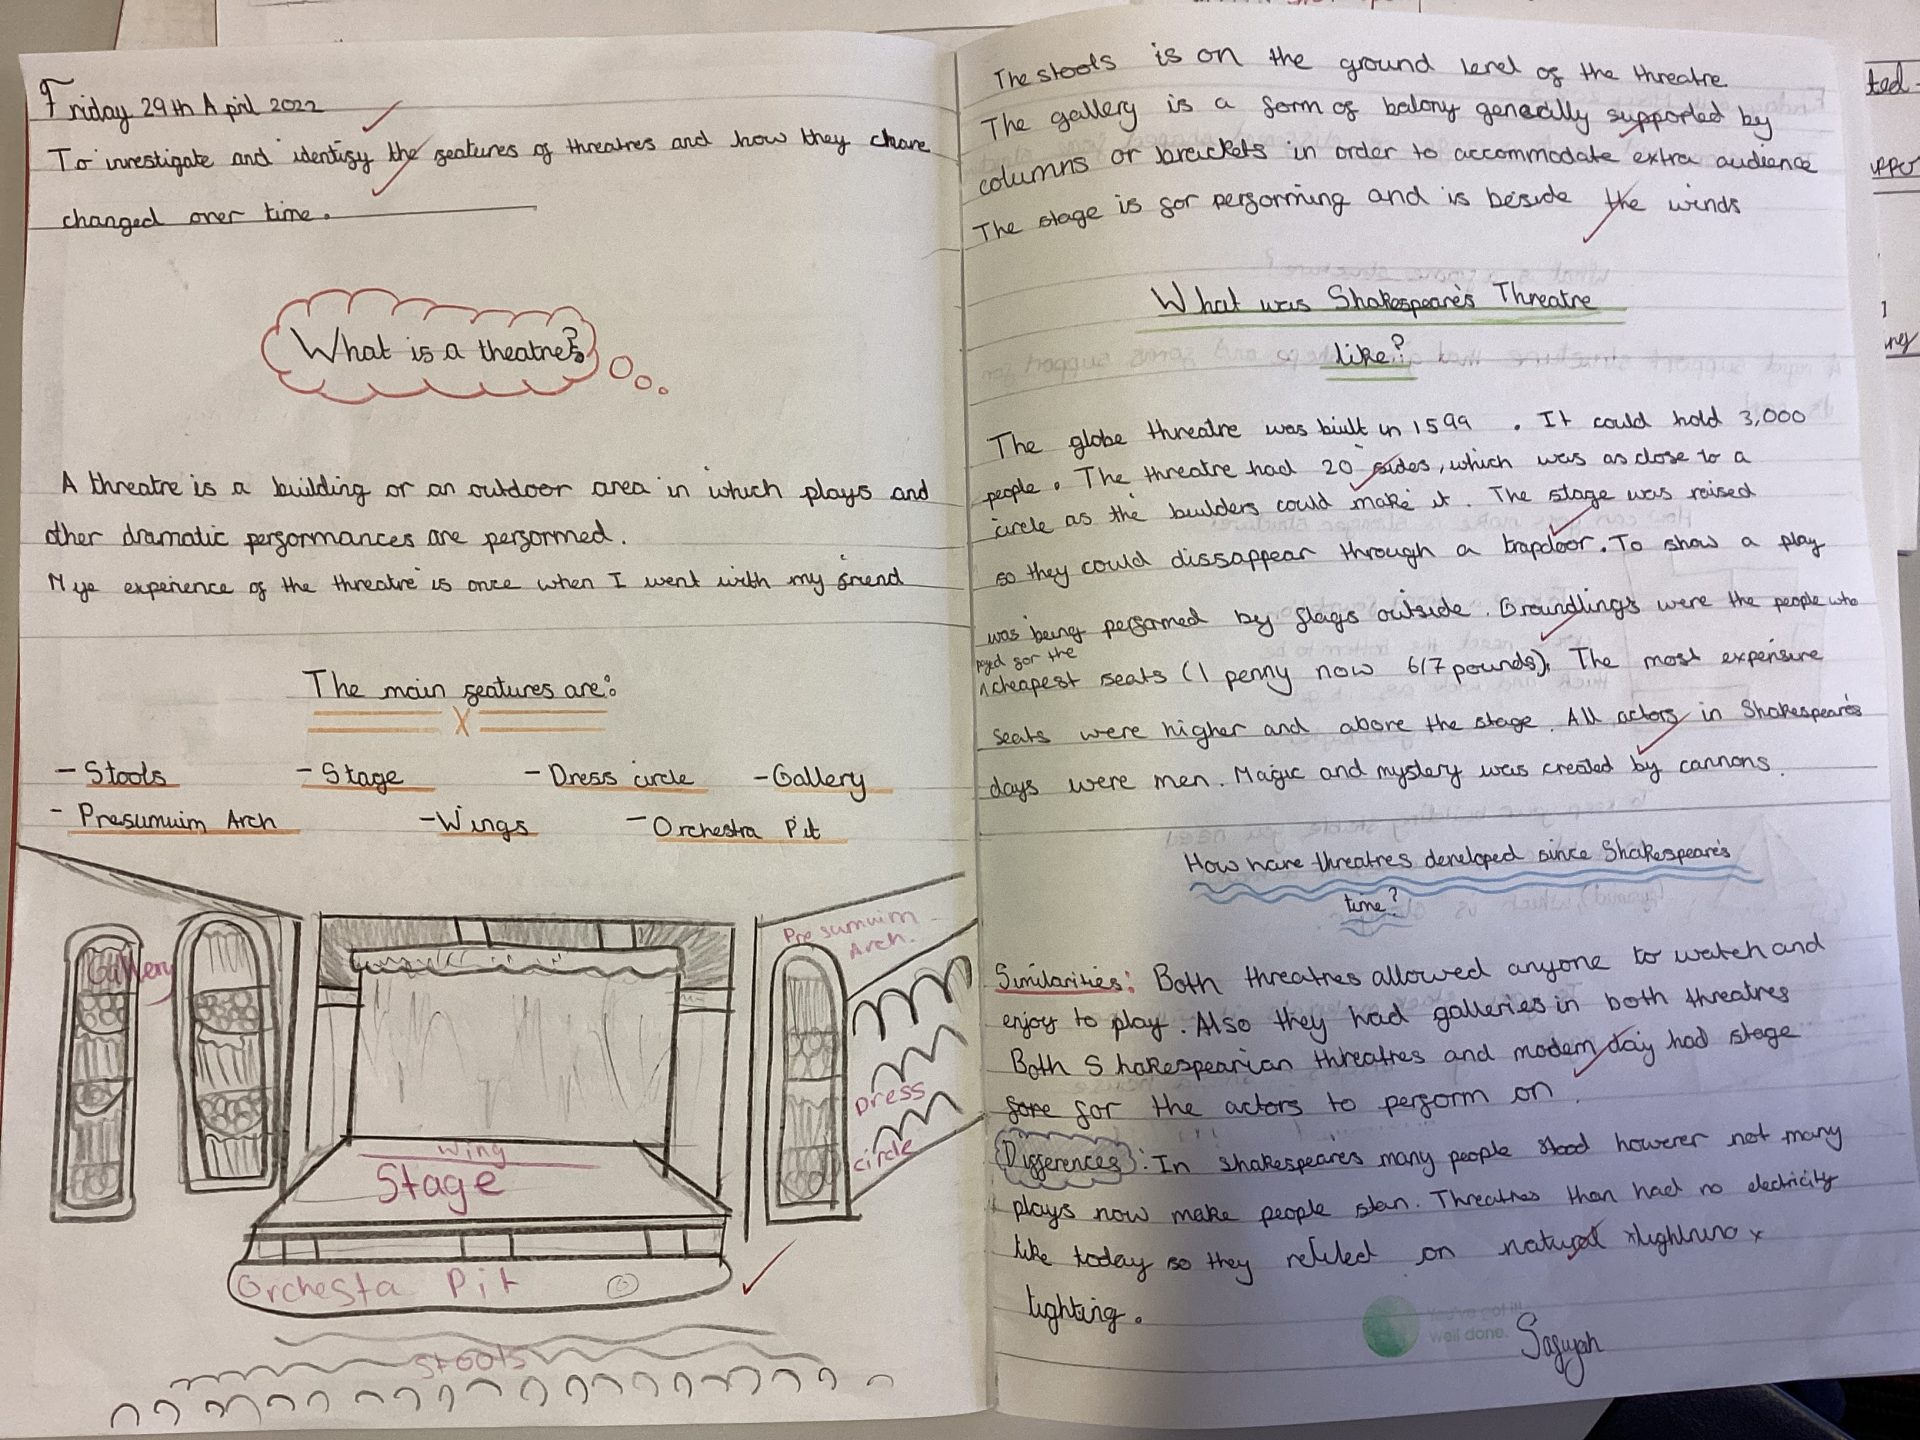 Friday 29th April 2022
To investigate and identify the features of threatres and how they chave
changed over time.
What is a theatre?
A threatre is a building or an outdoor area in which plays and
other dramatic performances are performed.
Mye experience of the threatre is once when I went with my friend
The main features are:
- Stools - Stage - Dress circle - Gallery
- Presumuim Arch - Wings - Orchestra Pit
Gallery
Presumuim
Arch.
Dress
circle
wing
Stage
Orchesta Pit
Stools
The stools is on the ground level of the threatre
The gallery is a form of balony generally supported by
columns or brackets in order to accommodate extra audience
The stage is for performing and is beside the winds
What was Shakespeare's Threatre
like?
The globe threatre was built in 1599 . It could hold 3,000
people. The threatre had 20 sides, which was as close to a
circle as the builders could make it. The stage was raised
so they could dissappear through a trapdoor. To show a play
was being performed by flags outside. Groundlings were the people who
payed for the
cheapest seats (1 penny now 6/7 pounds). The most expensive
seats were higher and above the stage. All actors in Shakespeare's
days were men. Magic and mystery was created by cannons.
How have threatres developed since Shakespeare's
time?
Similarities: Both threatres allowed anyone to watch and
enjoy to play. Also they had galleries in both threatres
Both Shakespearian threatres and modern day had stage
for the actors to perform on.
Differences: In shakespeare's many people stood however not many
plays now make people stan. Threatres than had no electricity
like today so they relied on natural
lighting.
You've got it!
well done.